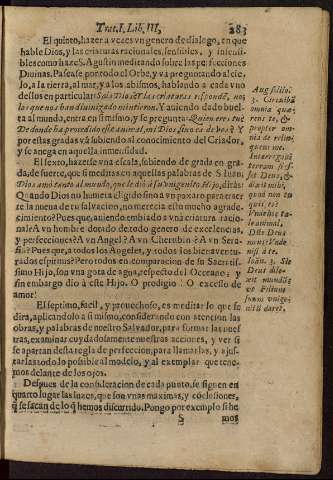 Trat. I. Lib. III, 283
El quinto, hazer a vezes vn genero de dialogo, en que
hable Dios, y las criaturas racionales, sensibles, y insensi-
bles como haze S. Agustin meditando sobre las perfecciones
Diuinas. Pasease por todo el Orbe, y va preguntando al cie-
lo, a la tierra, al mar, y a los abismos, hablando a cada vno
dellos en particular
los que nos han diuinizado mintieron. Y auiendo dado buel-
ta al mundo, entra en si mismo, y se pregunta: Quien eres tu?
De donde ha procedido este animal, mi Dios, sino es de vos? Y
por estas gradas và subiendo al conocimiento del Criador,
y se anega en aquella inmensidad.
El sexto, hazerse vna escala, subiendo de grada en gra-
da, de suerte, que si meditas en aquellas palabras de S. Iuan
Dios amò tanto al mundo, que le diò à su vnigenito Hijo, diràs:
Quando Dios no huuiera eligido sino a vn paxaro para traer
te la nueua de tu saluacion, no merecia esto mucho agrade-
cimiento? Pues que, auiendo embiado a vnà criatura racio-
nal? A vn hombre dotado de zodo genero de excelencias,
y perfecciones? A vn Angel? A vn Cherubin? A vn Sera-
fin? Pues que, a todos los Angeles, y todos los bienauentu-
rados espiritus? Pero todos en comparacion de su Sacratis-
simo Hijo, son vna gota de agua, respecto del Occeano; y
sin embargo diò à este Hijo. O prodigio! O excesso de
amor!
El septimo, facil, y prouechoso, es meditar lo que se
dirà, aplicandolo a si mismo, considerando con atencion las
obras, y palabras de nuestro Saluador, para formar las nues-
tras, examinar cuydadosamente nuestras acciones, y ver si
se apartan desta regla de perfeccion, para llamarlas, y ajus-
tarlas todo lo posible al modelo, y al exemplar que tene-
mos delante de los ojos.
Despues de la consideracion de cada punto, se siguen en
quarto lugar las luzes, que son vnas maximas, y cōclusiones,
q̃ se sacan de lo q̃ hemos discurrido. Pongo por exemplo si he
S mos
Aug. solilo.
3. Circuibã
omnia quæ-
rens te, &
propter om-
nia derelin-
quens me.
Interrogaui
terram si es-
set Deus, &
dixit mihi,
quod non tu
quis es?
Vnde hic ta-
le animal,
Domine Deus
meus? Vnde
nisi à te.
Ioan. 3. Sic
Deus dile-
xit mundũ,
vt Filium
suum vnige-
nitũ daret.